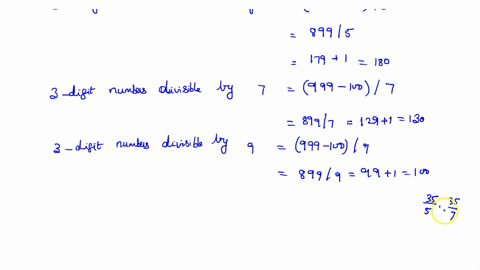 = 899/5
= 179 + 1 = 180
3-digit numbers divisible by 7 = (999-100)/7
= 899/7 = 129+1 = 130
3-digit numbers divisible by 9 = (999-100)/9
= 899/9 = 99+1 = 100
35/5 , 35/7